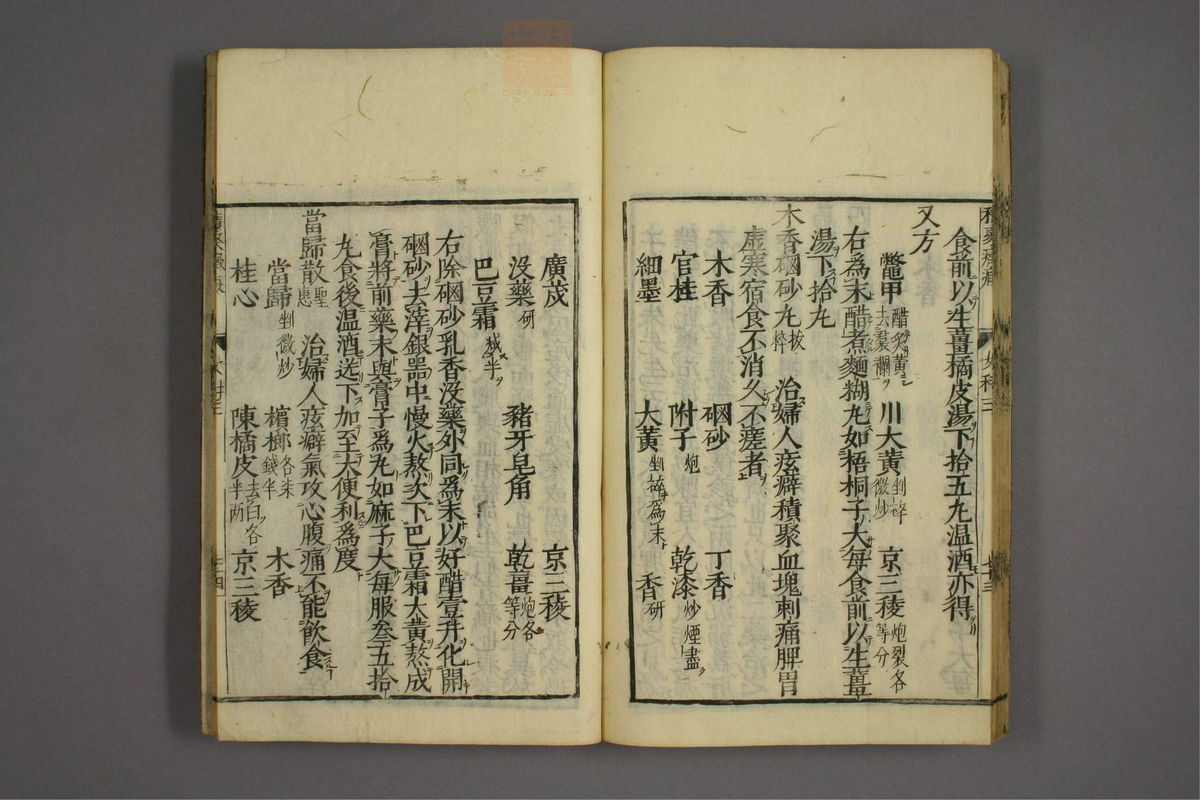 食前以生薑橘皮湯下拾五丸温酒亦得
又方
鼈甲醋炙黄去裙襴 川大黄剉碎微炒 京三稜炮裂各等分
右爲末醋煮麵糊丸如梧桐子大每食前以生薑
湯下拾丸
木香硇砂丸拔粹 治婦人痃癖積聚血塊刺痛脾胃
虚寒宿食不消久不瘥者
木香 硇砂 丁香
官桂 附子炮 乾漆炒煙盡
細墨 大黄剉碎爲末 香研
廣茂 京三稜
没藥研 豬牙皂角 乾薑炮各等分
巴豆霜減半
右除硇砂乳香没藥外同爲末以好醋壹升化開
硇砂去滓銀器中慢火熬次下巴豆霜大黄熬成
膏將前藥末與膏子爲丸如麻子大每服叁五拾
丸食後温酒送下加至大便利爲度
當歸散聖惠 治婦人痃癖氣攻心腹痛不能飲食
當歸剉微炒 檳榔各柒錢半 木香
桂心 陳橘皮去白各半兩 京三稜
女科三